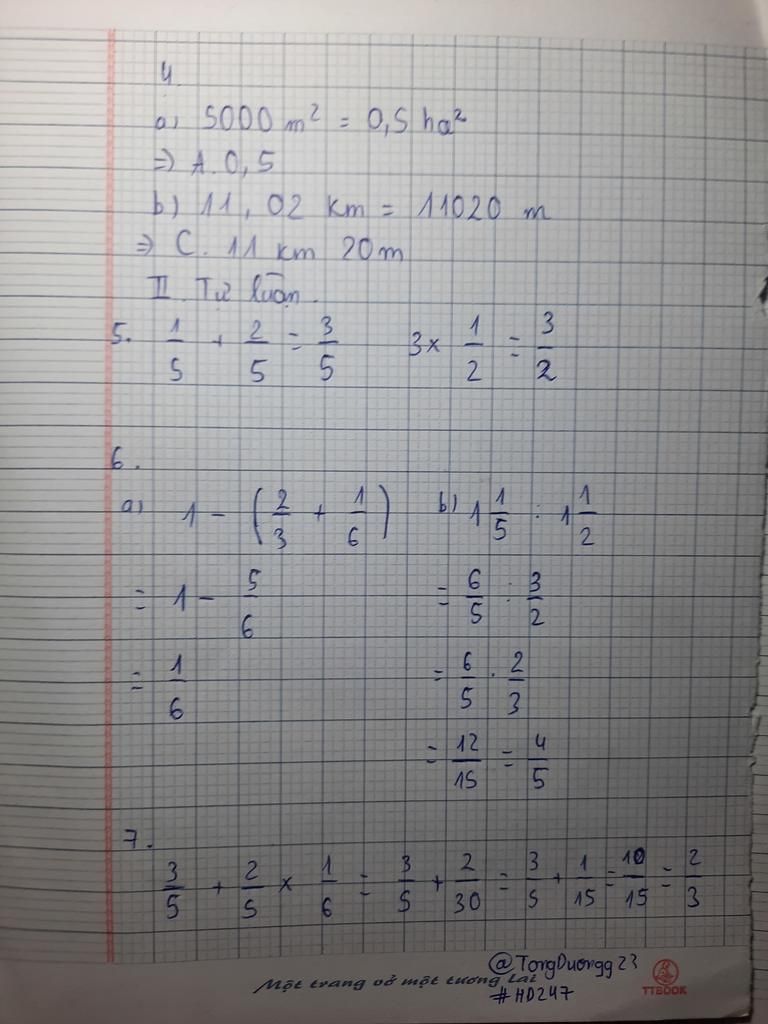 4
a) 5000 m² = 0,5 ha²
=> A. 0,5
b) 11,02 km = 11020 m
=> C. 11 km 20m
II. Tự luận.
5. 1/5 + 2/5 = 3/5 3 × 1/2 = 3/2
6.
a) 1 - (2/3 + 1/6) b) 1 1/5 : 1 1/2
= 1 - 5/6 = 6/5 : 3/2
= 1/6 = 6/5 . 2/3
= 12/15 = 4/5
7.
3/5 + 2/5 × 1/6 = 3/5 + 2/30 = 3/5 + 1/15 = 10/15 = 2/3
@TongDuongg23
Một trang vở một tương lai
#HD247
TTBOOK